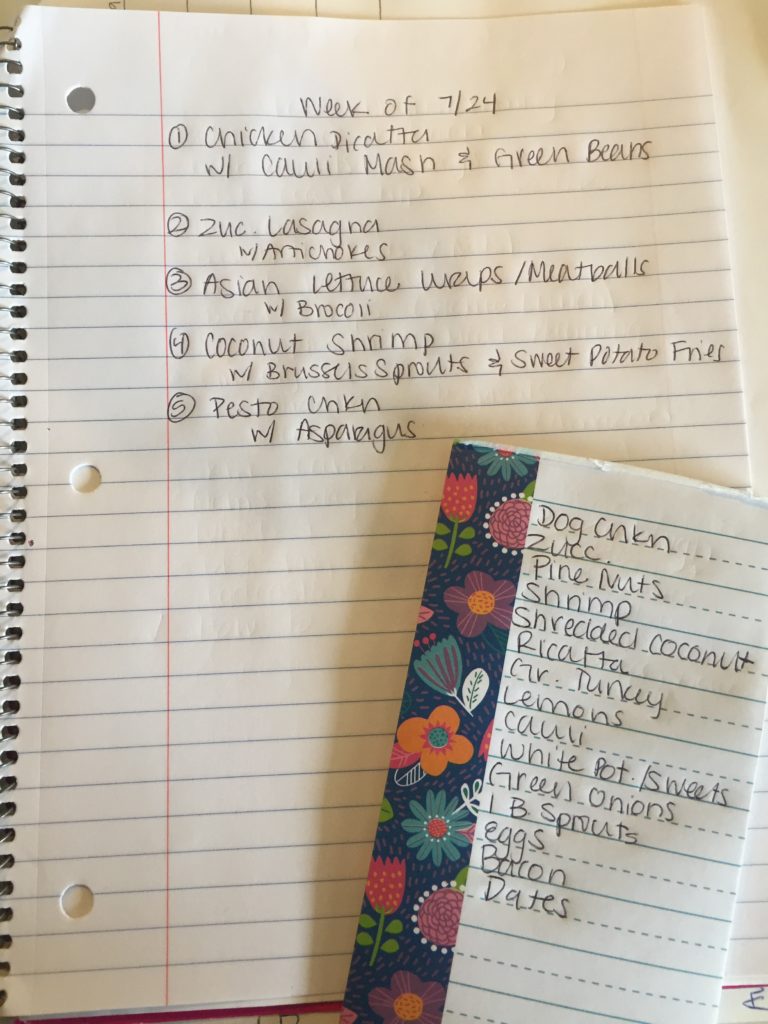 Week of 7/24
① Chicken Picatta
w/ Cauli Mash & Green Beans
② Zuc. Lasagna
w/ Artichokes
③ Asian Lettuce Wraps/Meatballs
w/ Brocoli
④ Coconut Shrimp
w/ Brussels Sprouts & Sweet Potato Fries
⑤ Pesto Chkn
w/ Asparagus
Dog Chkn
Zucc.
Pine Nuts
Shrimp
Shredded Coconut
Ricatta
Gr. Turkey
Lemons
Cauli
White Pot./Sweets
Green Onions
1 B. Sprouts
eggs
Bacon
Dates